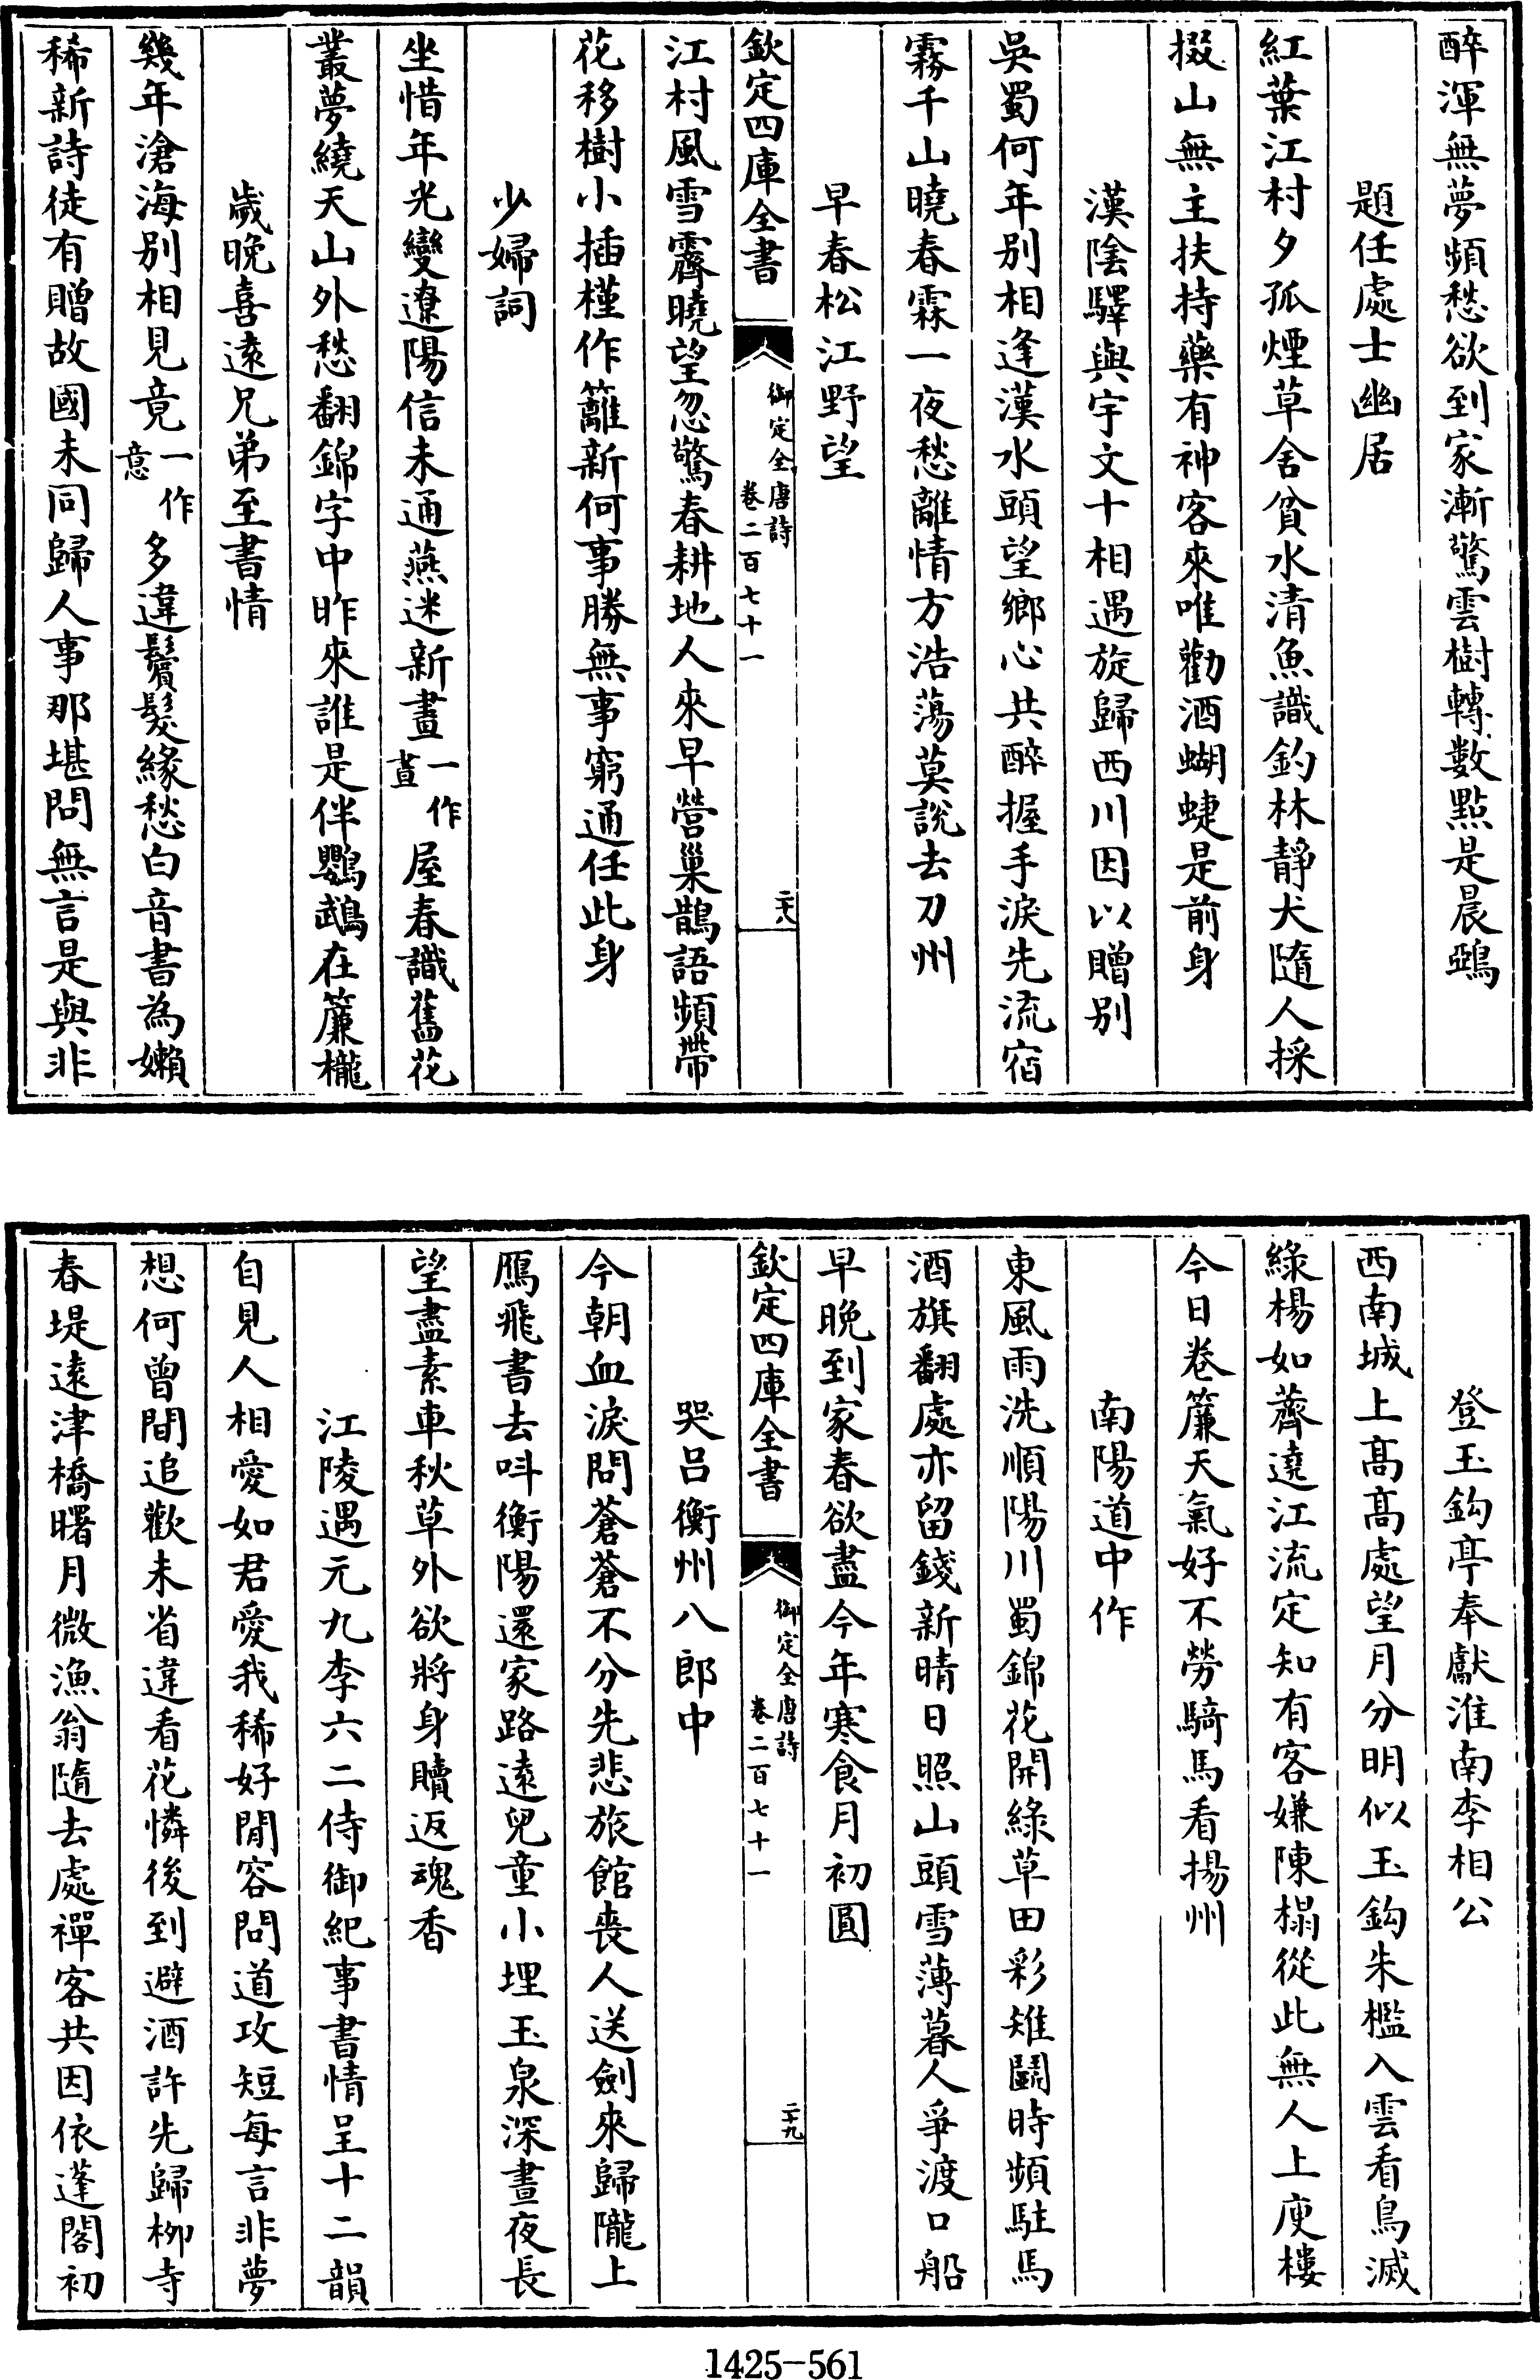 醉渾無夢頻愁欲到家漸驚雲樹轉數點是晨鵶
題任處士幽居
紅葉江村夕孤煙草舍貧水清魚識釣林靜犬隨人採
掇山無主扶持藥有神客來唯勸酒蝴蜨是前身
漢陰驛與宇文十相遇旋歸西川因以贈别
吳蜀何年别相逢漢水頭望鄉心共醉握手淚先流宿
霧千山曉春霖一夜愁離情方浩蕩莫説去刀州
早春松江野望
欽定四庫全書
御定全唐詩
卷二百七十一
二十八
江村風雪霽曉望忽驚春耕地人來早營巢鵲語頻帶
花移樹小插槿作籬新何事勝無事窮通任此身
少婦詞
坐惜年光變遼陽信未通燕迷新畫一作晝屋春識舊花
叢夢繞天山外愁翻錦字中昨來誰是伴鸚鵡在簾櫳
歲晚喜遠兄弟至書情
幾年滄海别相見竟一作意多違鬢髮緣愁白音書為嬾
稀新詩徒有贈故國未同歸人事那堪問無言是與非
登玉鈎亭奉獻淮南李相公
西南城上高高處望月分明似玉鈎朱檻入雲看鳥滅
綠楊如薺遶江流定知有客嫌陳榻從此無人上庾樓
今日卷簾天氣好不勞騎馬看揚州
南陽道中作
東風雨洗順陽川蜀錦花開綠草田彩雉鬭時頻駐馬
酒旗翻處亦留錢新晴日照山頭雪薄暮人爭渡口船
早晚到家春欲盡今年寒食月初圓
欽定四庫全書
御定全唐詩
卷二百七十一
二十九
哭呂衡州八郎中
今朝血淚問蒼蒼不分先悲旅館喪人送劍來歸隴上
鴈飛書去呌衡陽還家路遠兒童小埋玉泉深晝夜長
望盡素車秋草外欲將身贖返魂香
江陵遇元九李六二侍御紀事書情呈十二韻
自見人相愛如君愛我稀好閒容問道攻短每言非夢
想何曾間追歡未省違看花憐後到避酒許先歸栁寺
春堤遠津橋曙月微漁翁隨去處禪客共因依蓬閣初
1425-561